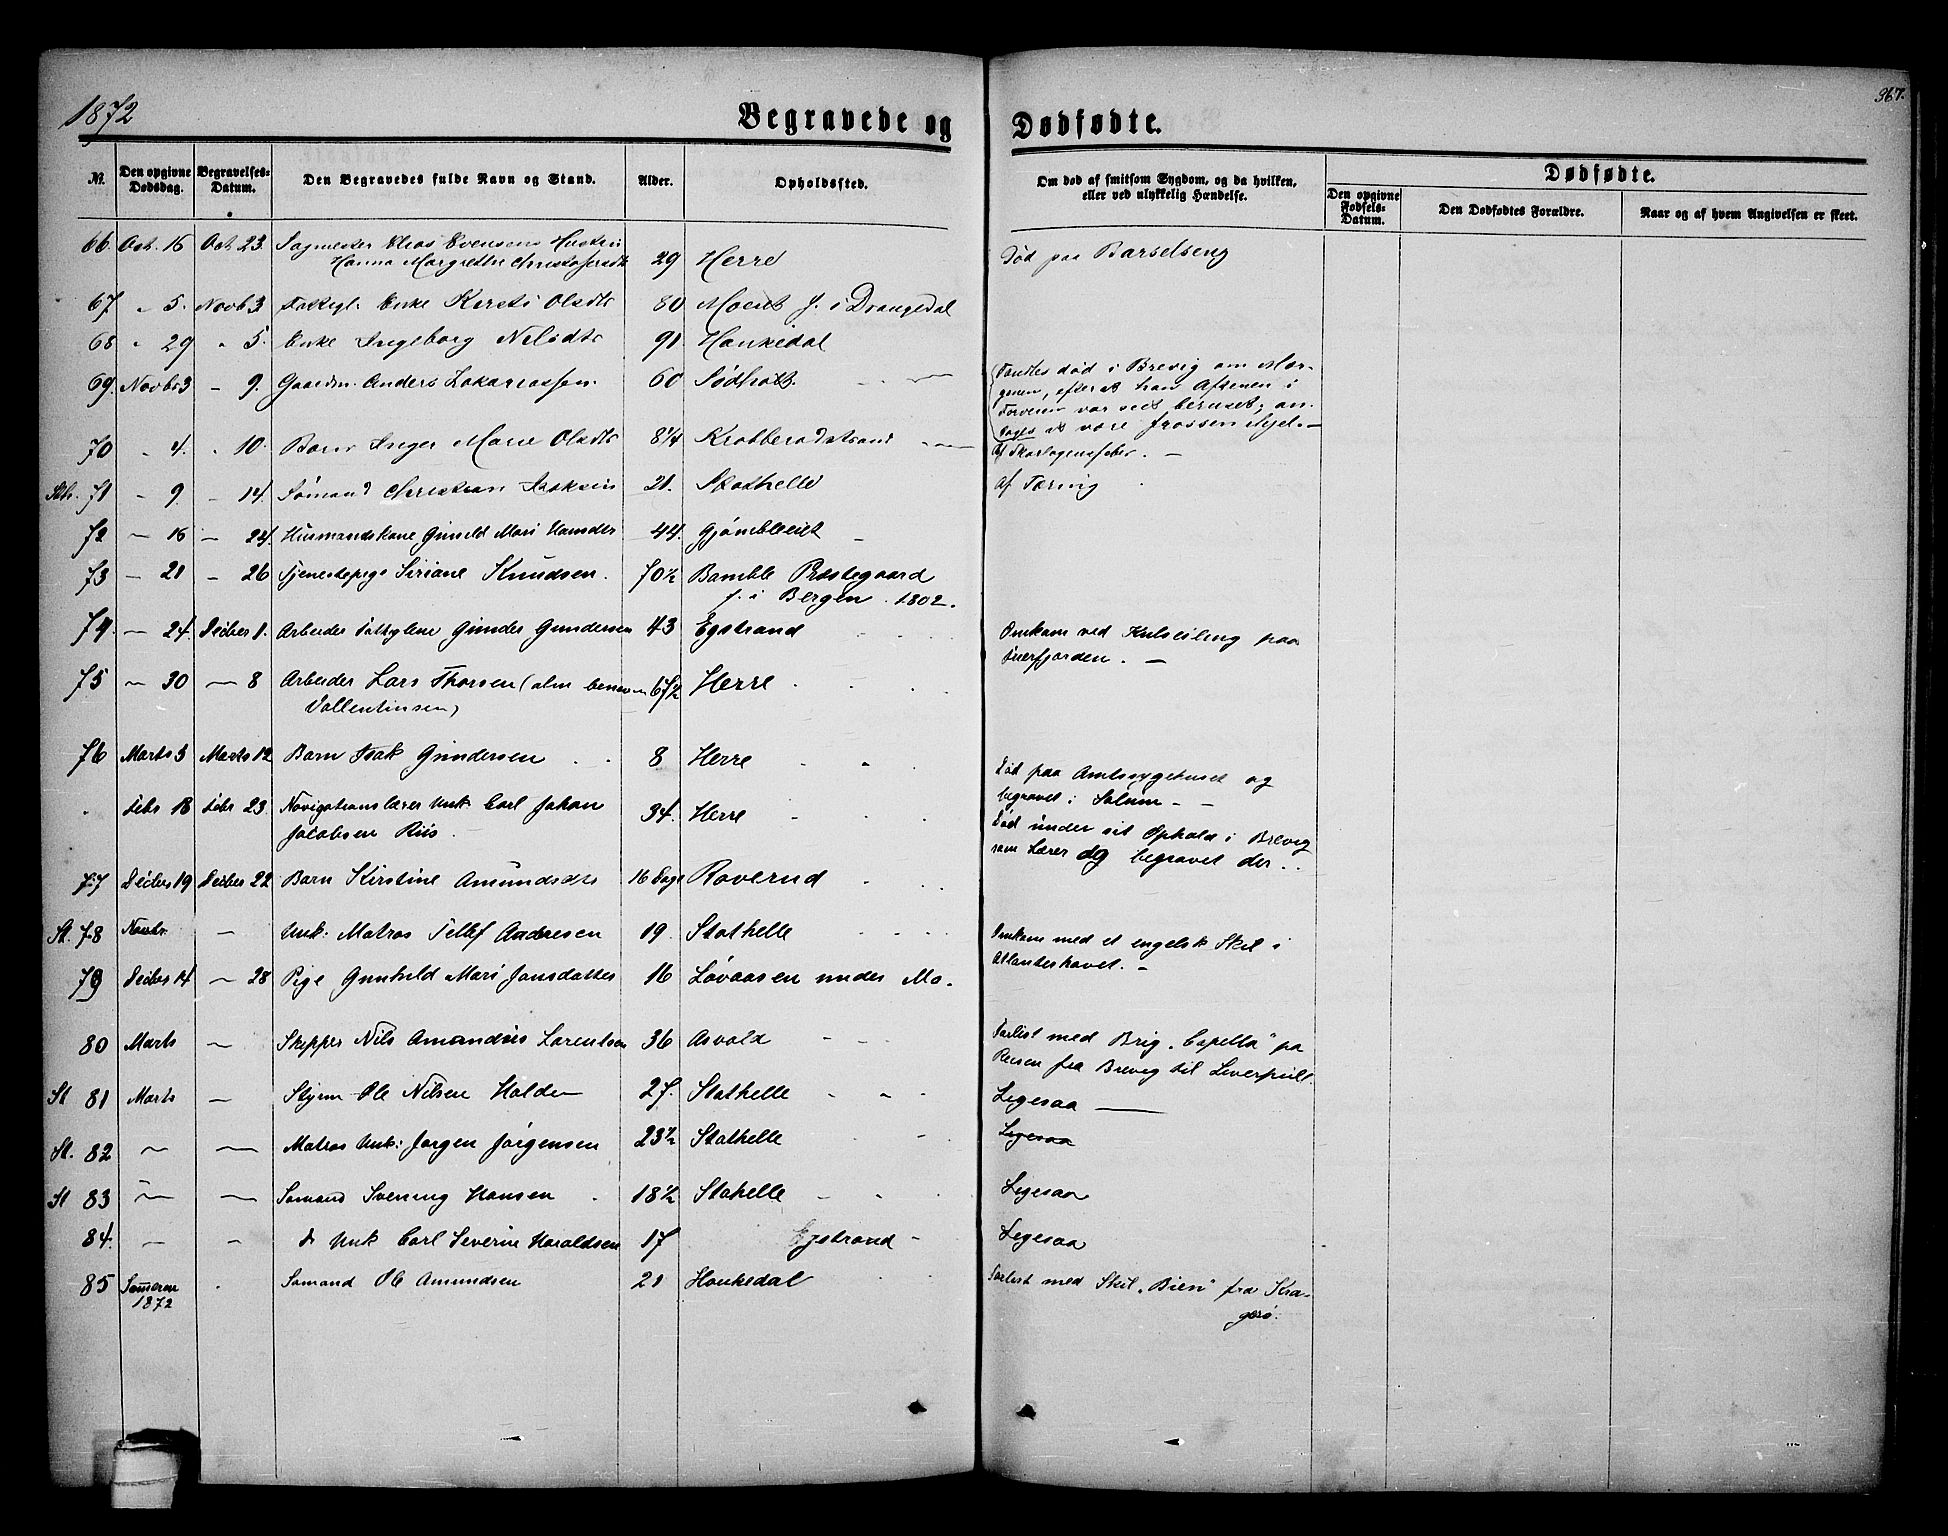 1872
Begravede og Dødfødte.
367.
Nr. Den opgivne Dødsdag. Begravelses-Datum. Den Begravedes fulde Navn og Stand. Alder. Opholdssted. Om død af smitsom Sygdom, og da hvilken, eller ved ulykkelig Hændelse. Dødfødte.
Den opgivne Fødsels-Datum. Den Dødfødtes Forældre. Naar og af hvem Angivelsen er skeet.
66. Oct. 16 Oct 23. Sagmester Elias Evensens Hustru
Hanna Margrethe Christofersdt 29 Herre Død paa Barselseng
67 " 5. Novb 3 Enke Kirsti Olsdtr 80 Moen f. i Drangedal
68 " 29 " 5. Enke Ingeborg Nilsdtr 91 Hankedal
69. Novbr 3 - 9. Gaardm. Anders Zakariassen. 60 Sødholt Fandtes død i Brevig om Mor-
genen, efter at han Aftenen i
Forveien var seet beruset, an-
tages at være frossen ihjel. -
70 " 4. " 10. Barn Inger Marie Olsdtr 8 1/4 af Skarlagensfeber. -
Sth. 71 - 9. - 14. Sømand Christian Isaksen 21. Stathelle af Tæring
72 - 16 - 24. Husmandskone Gunild Mari Hansdtr 44.
73 - 21 - 26 Tjenestepige Siriane Knudsen. 70 1/2 Bamble Præstegaard
f. i Bergen. 1802.
74. - 24. Decber 1. Arbeider Gunder Gundersen 43 Egstrand Omkom ved Kulseiling paa
Frierfjorden. -
75 - 30 - 8 Arbeider Lars Thorsen (alm benævn 67 1/2 Herre
Vallentinsen)
76 Marts 3 Marts 12 Barn Isak Gundersen 8 Herre Død paa Amtssygehuset og
begravet i Solum - -
" Febr 18 Febr 23. Navigationslærer Unk. Carl Johan
Jacobsen Riis 34. Herre Død under sit Ophold i Brevig
som Lærer og begravet der. .
77 Decber 19 Decber 22 Barn Kirstine Amundsdtr 16 Dage Roverud
St. 78 Novbr - Unk: Matros Tellef Andresen 19 Stathelle Omkom med et engelsk Skib i
Atlanterhavet. -
79 Decber 14 - 28 Pige Gunhild Mari Jansdatter 16 Løvaasen under Mo.
80 Marts - Skipper Nils Amandus Lorentsen 36 Asvold Forlist med Brig "Capella" pa
Reisen fra Brevig til Liverpull
St 81 Marts - Styrm Ole Nilsen Halden 27. Stathelle Ligesaa
St. 82 - - Matros Unk: Jørgen Jørgensen 23 1/2 Stathelle Ligesaa
St 83 - - Sømand Svening Hansen 18 1/2 Stathelle Ligesaa
84. - - do Unk Carl Severin Haraldsen 17 Egstrand Ligesaa
85 Sommeren
1872 Sømand Ole Amundsen 21 Hankedal Forlist med Skib "Bien" fra Kra-
gerø.